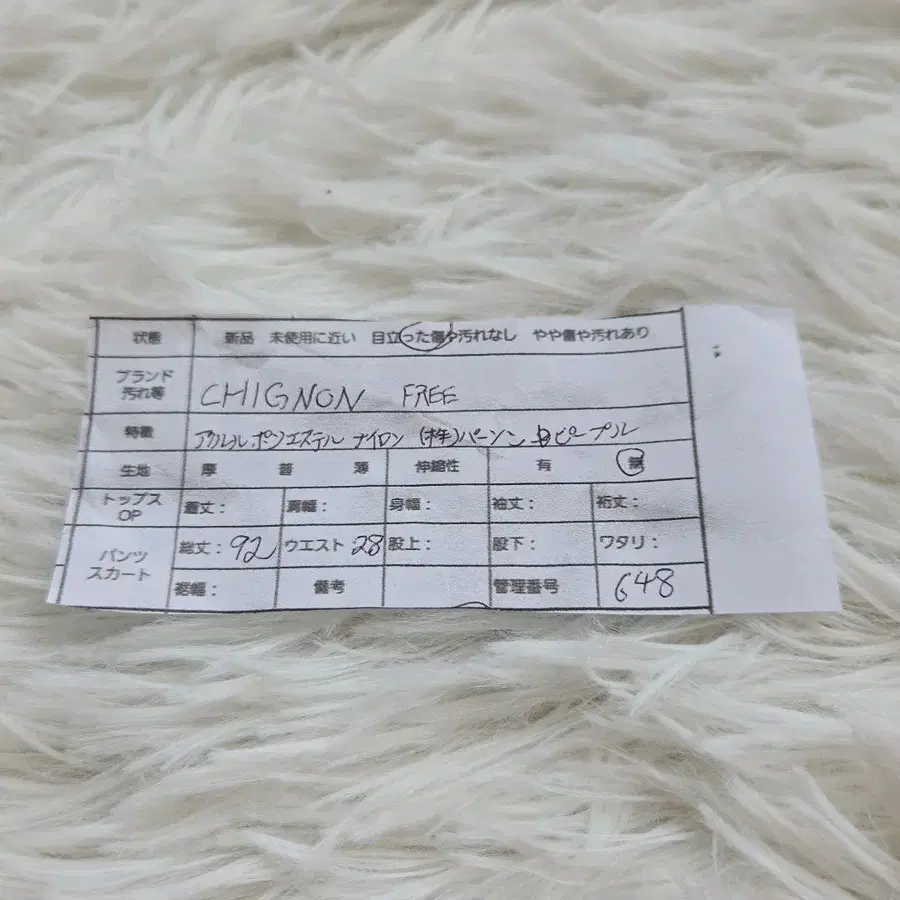 状態 新品 未使用に近い 目立った傷や汚れなし やや傷や汚れあり
ブランド
汚れ等 CHIGNON FREE
特徴 アクリル ポリエステル ナイロン (株)パーソンズピープル
生地 厚 普 薄 伸縮性 有 無
トップス
OP 着丈: 肩幅: 身幅: 袖丈: 裄丈:
パンツ
スカート 総丈:92 ウエスト:28 股上: 股下: ワタリ:
裾幅: 備考 管理番号 648